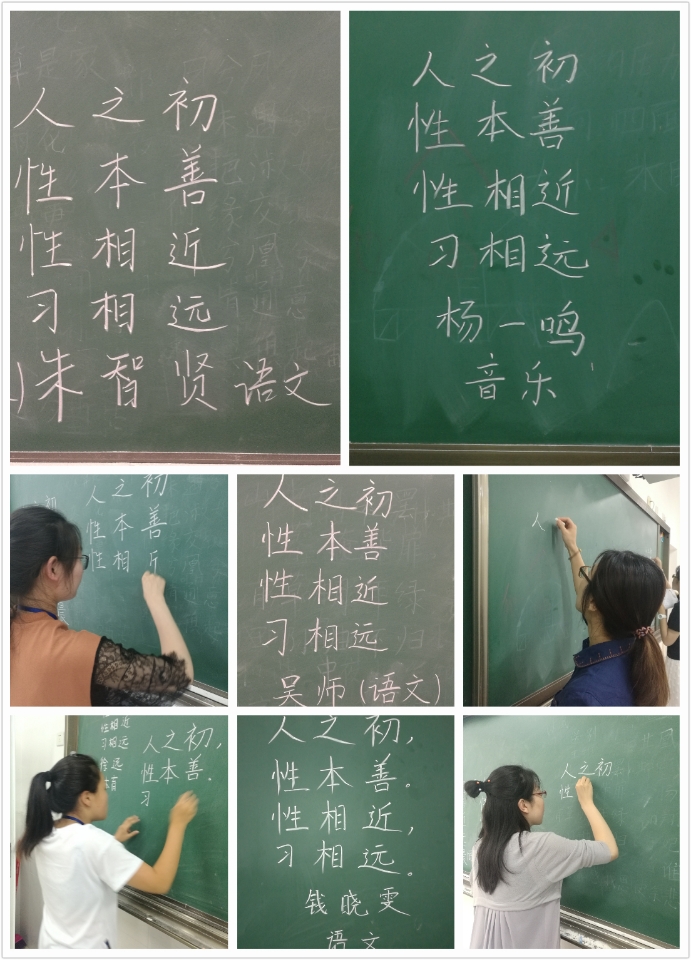 人之初
性本善
性相近
习相远
朱智贤 语文
人之初
性本善
性相近
习相远
杨一鸣
音乐
人之初
性本善
性相近
人之初
性本善
性相近
习相远
吴师(语文)
人
性相近
习相远
人之初,
性本善。
习
人之初,
性本善。
性相近,
习相远。
钱晓雯
语文
人之初
性